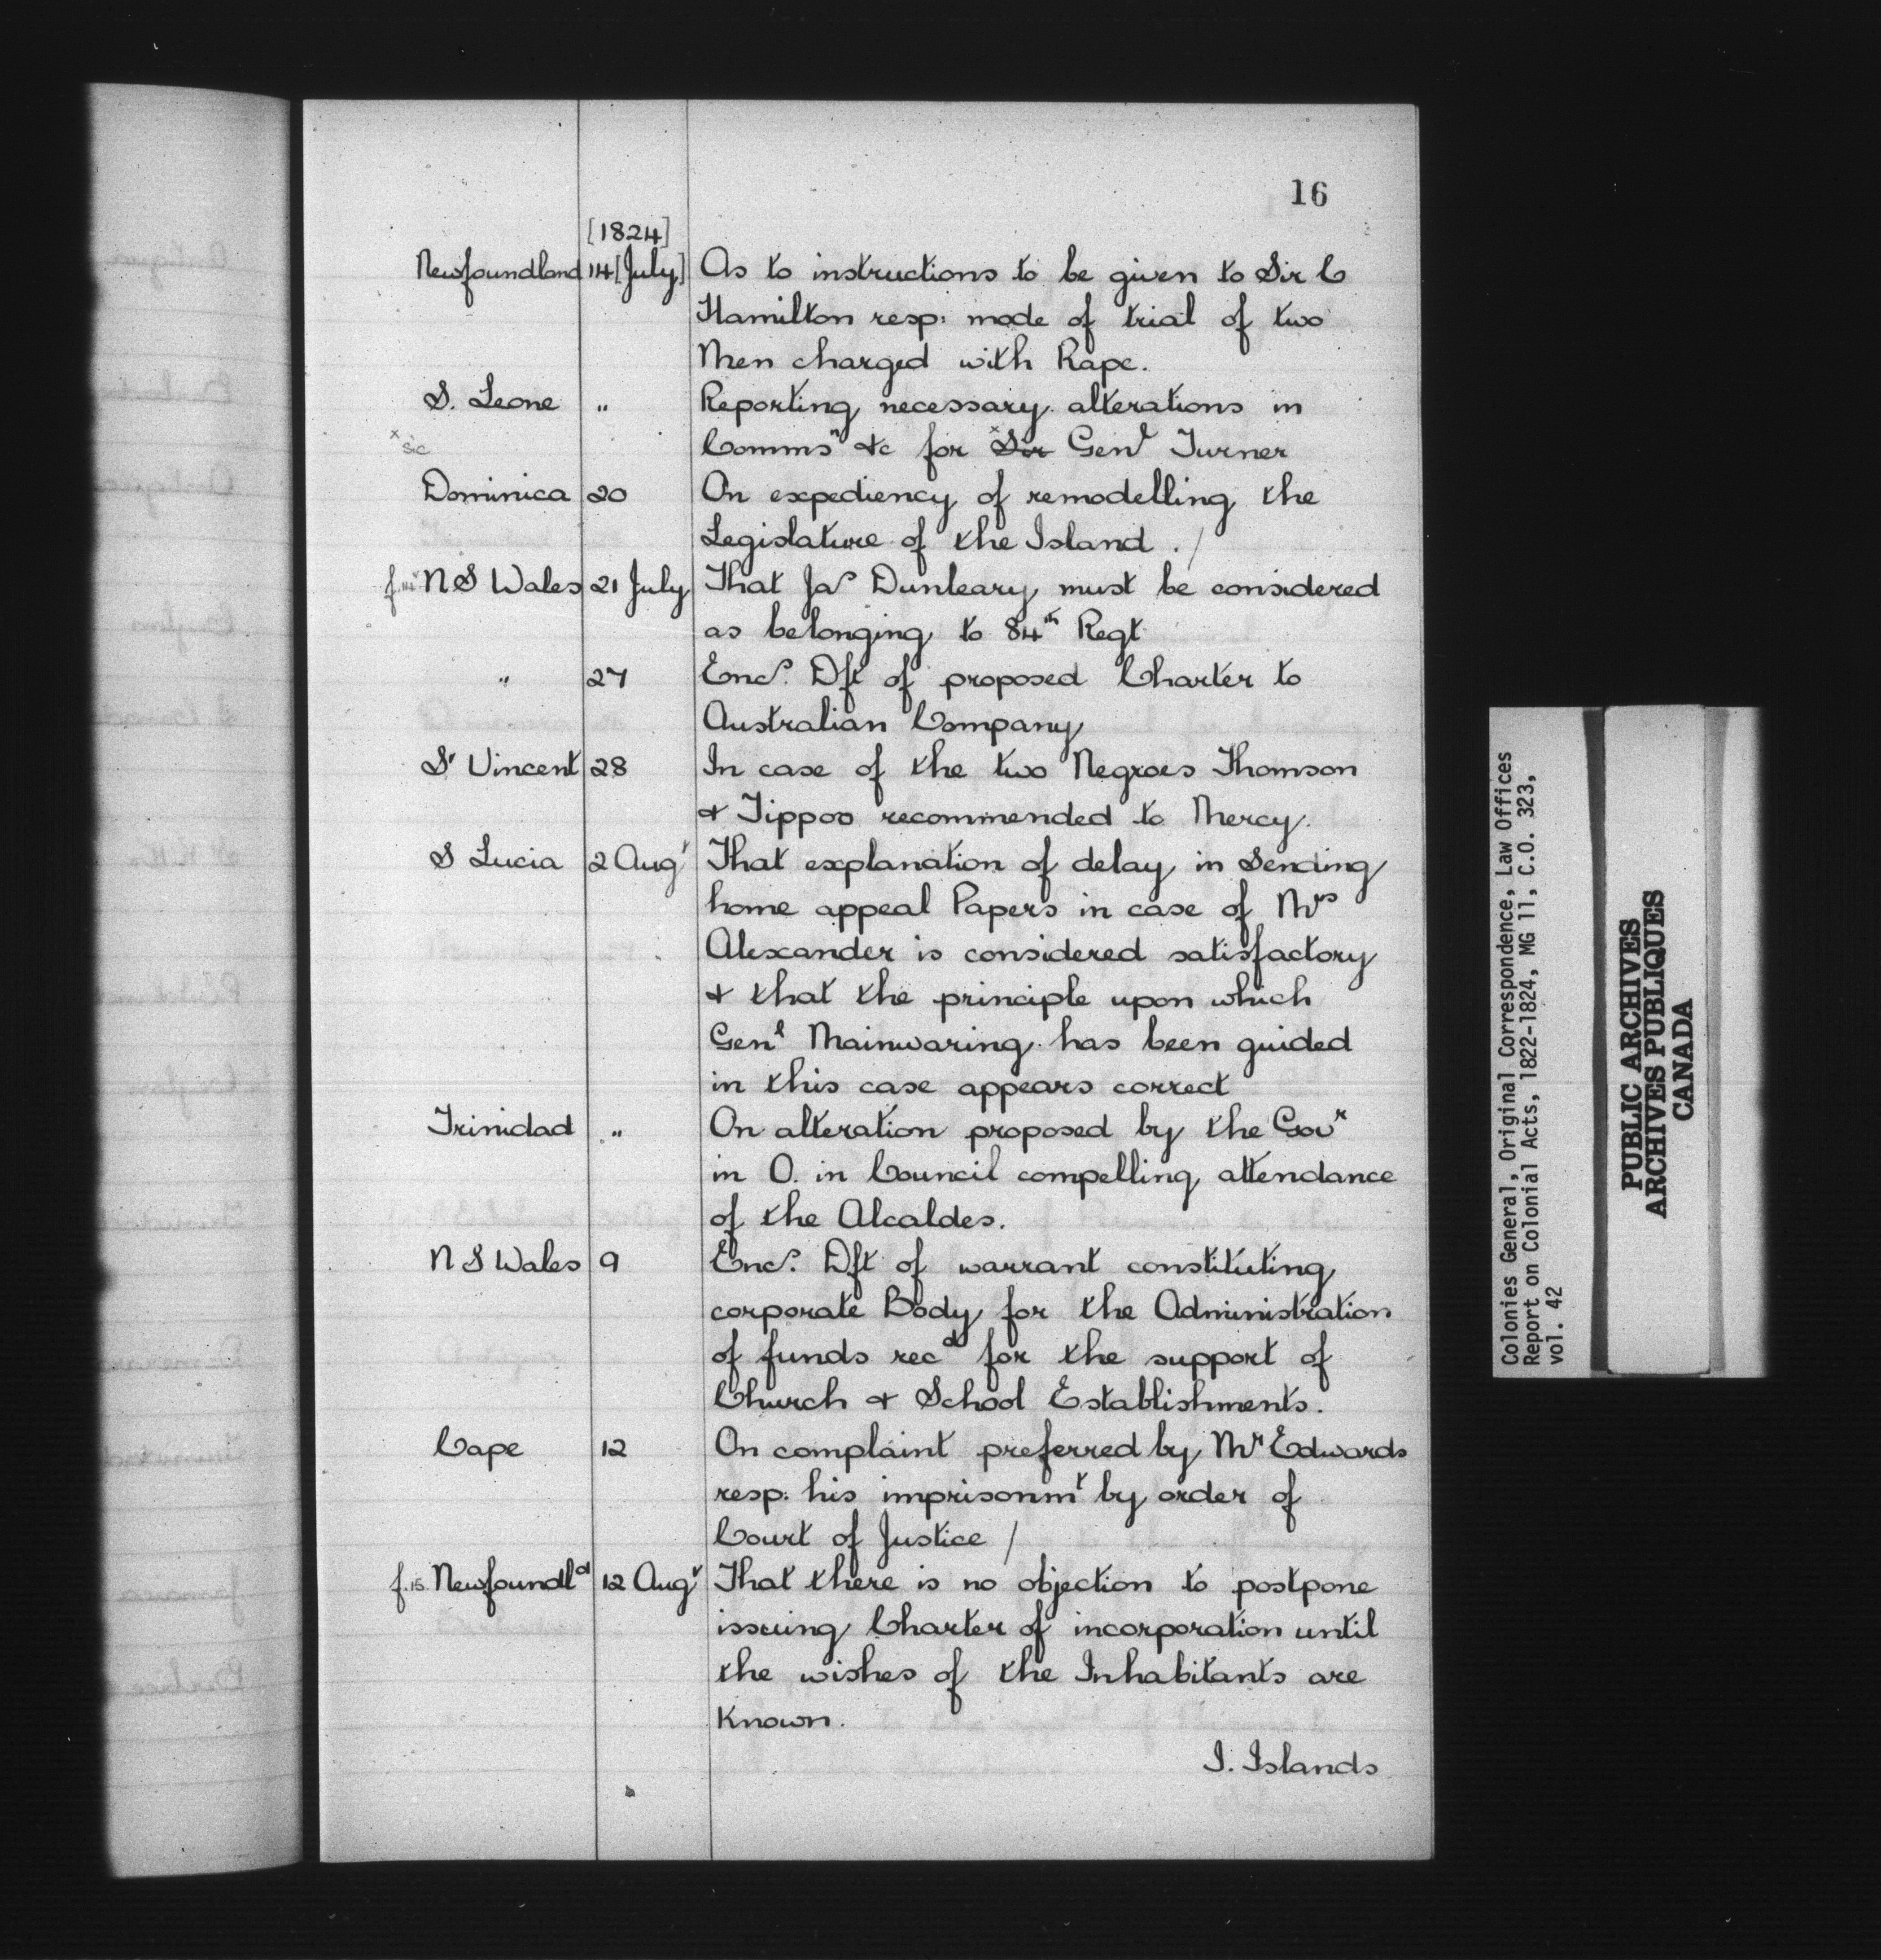 16
[1824]
Newfoundland 14 [July] As to instructions to be given to Sir C
Hamilton resp: mode of trial of two
Men charged with Rape.
S. Leone " Reporting necessary alterations in
x sic Commsn &c for x Sir Genl Turner
Dominica 20 On expediency of remodelling the
Legislature of the Island . /
N S Wales 21 July That Jas Dunleary must be considered
as belonging to 84th Regt
" 27 Encs. Dft of proposed Charter to
Australian Company
St Vincent 28 In case of the two Negroes Thomson
& Tippoo recommended to Mercy.
S Lucia 2 Augt That explanation of delay in sending
home appeal Papers in case of Mrs
Alexander is considered satisfactory
& that the principle upon which
Genl Mainwaring has been guided
in this case appears correct
Trinidad " On alteration proposed by the Govr
in O. in Council compelling attendance
of the Alcaldes.
N S Wales 9 Encs. Dft of warrant constituting
corporate Body for the Administration
of funds recd for the support of
Church & School Establishments.
Cape 12 On complaint preferred by Mr Edwards
resp: his imprisonmt by order of
Court of Justice /
f.15. Newfoundld 12 Augt That there is no objection to postpone
issuing Charter of incorporation until
the wishes of the Inhabitants are
Known.
I. Islands
Colonies General, Original Correspondence, Law Offices
Report on Colonial Acts, 1822-1824, MG 11, C.O. 323,
vol. 42
PUBLIC ARCHIVES
ARCHIVES PUBLIQUES
CANADA